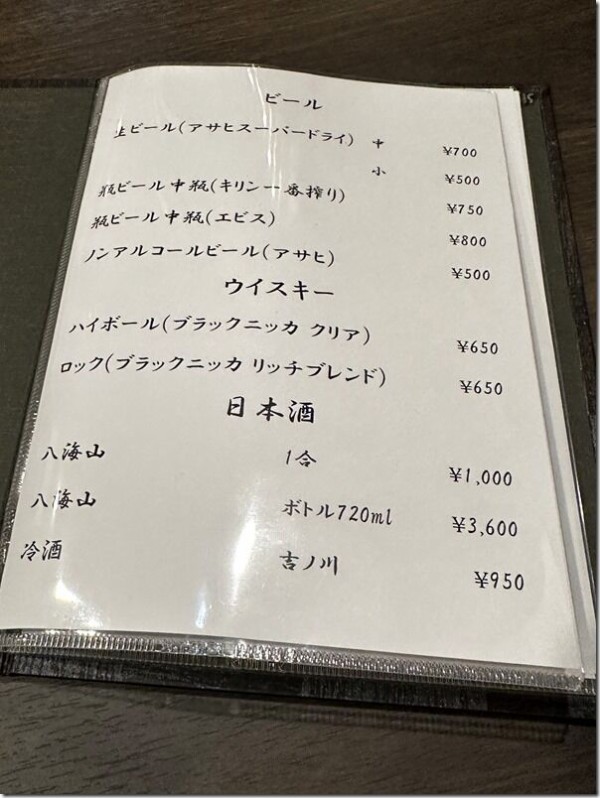 ビール
生ビール(アサヒスーパードライ) 中 ¥700
小 ¥500
瓶ビール 中瓶(キリン一番搾り) ¥750
瓶ビール 中瓶(エビス) ¥800
ノンアルコールビール(アサヒ) ¥500
ウイスキー
ハイボール(ブラックニッカ クリア) ¥650
ロック(ブラックニッカ リッチブレンド) ¥650
日本酒
八海山 1合 ¥1,000
八海山 ボトル720ml ¥3,600
冷酒 吉ノ川 ¥950